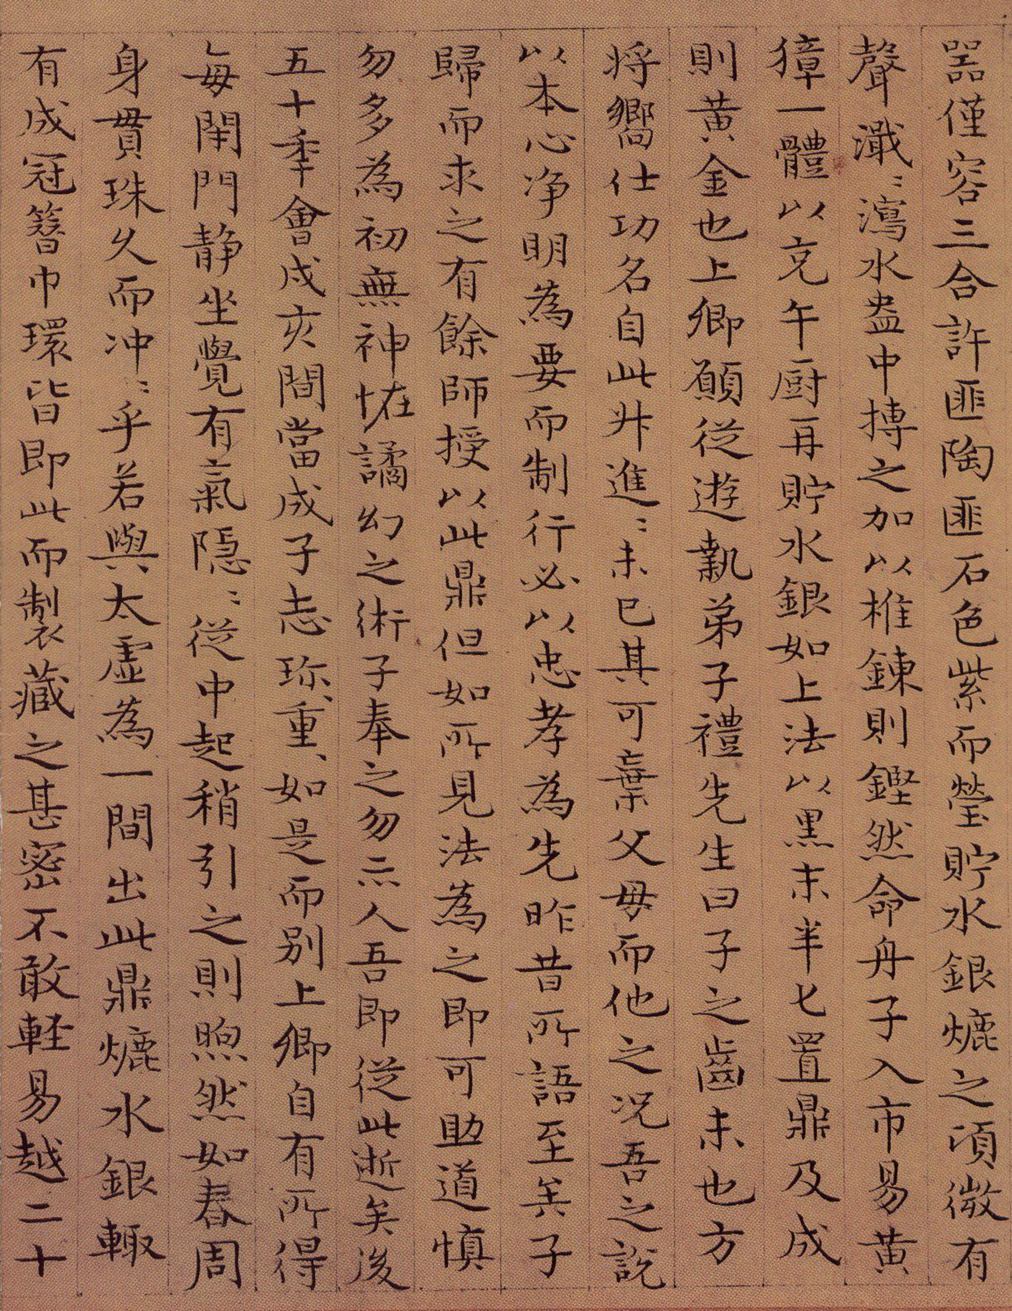 噐僅容三合許匪陶匪石色紫而瑩貯水銀熝之頃微有
聲瀐〻瀉水盎中摶之加以椎鍊則鏗然命舟子入市易黄
獐一體以充午厨再貯水銀如上法以黒末半匕置鼎及成
則黄金也上卿願従遊執弟子禮先生曰子之齒未也方
将嚮仕功名自此升進〻未已其可棄父母而他之况吾之説
以本心净明為要而制行必以忠孝為先昨昔所語至矣子
歸而求之有餘師授以此鼎但如所見法為之即可助道慎
勿多為初無神恠譎幻之術子奉之勿示人吾即従此逝矣後
五十年會戌亥間當成子志珎〻重〻如是而别上卿自有所得
每閑門静坐覺有氣隠〻従中起稍引之則煦然如春周
身貫珠久而冲〻乎若與太虚為一間出此鼎熝水銀輙
有成冠簪巾環皆即此而製藏之甚密不敢軽易越二十